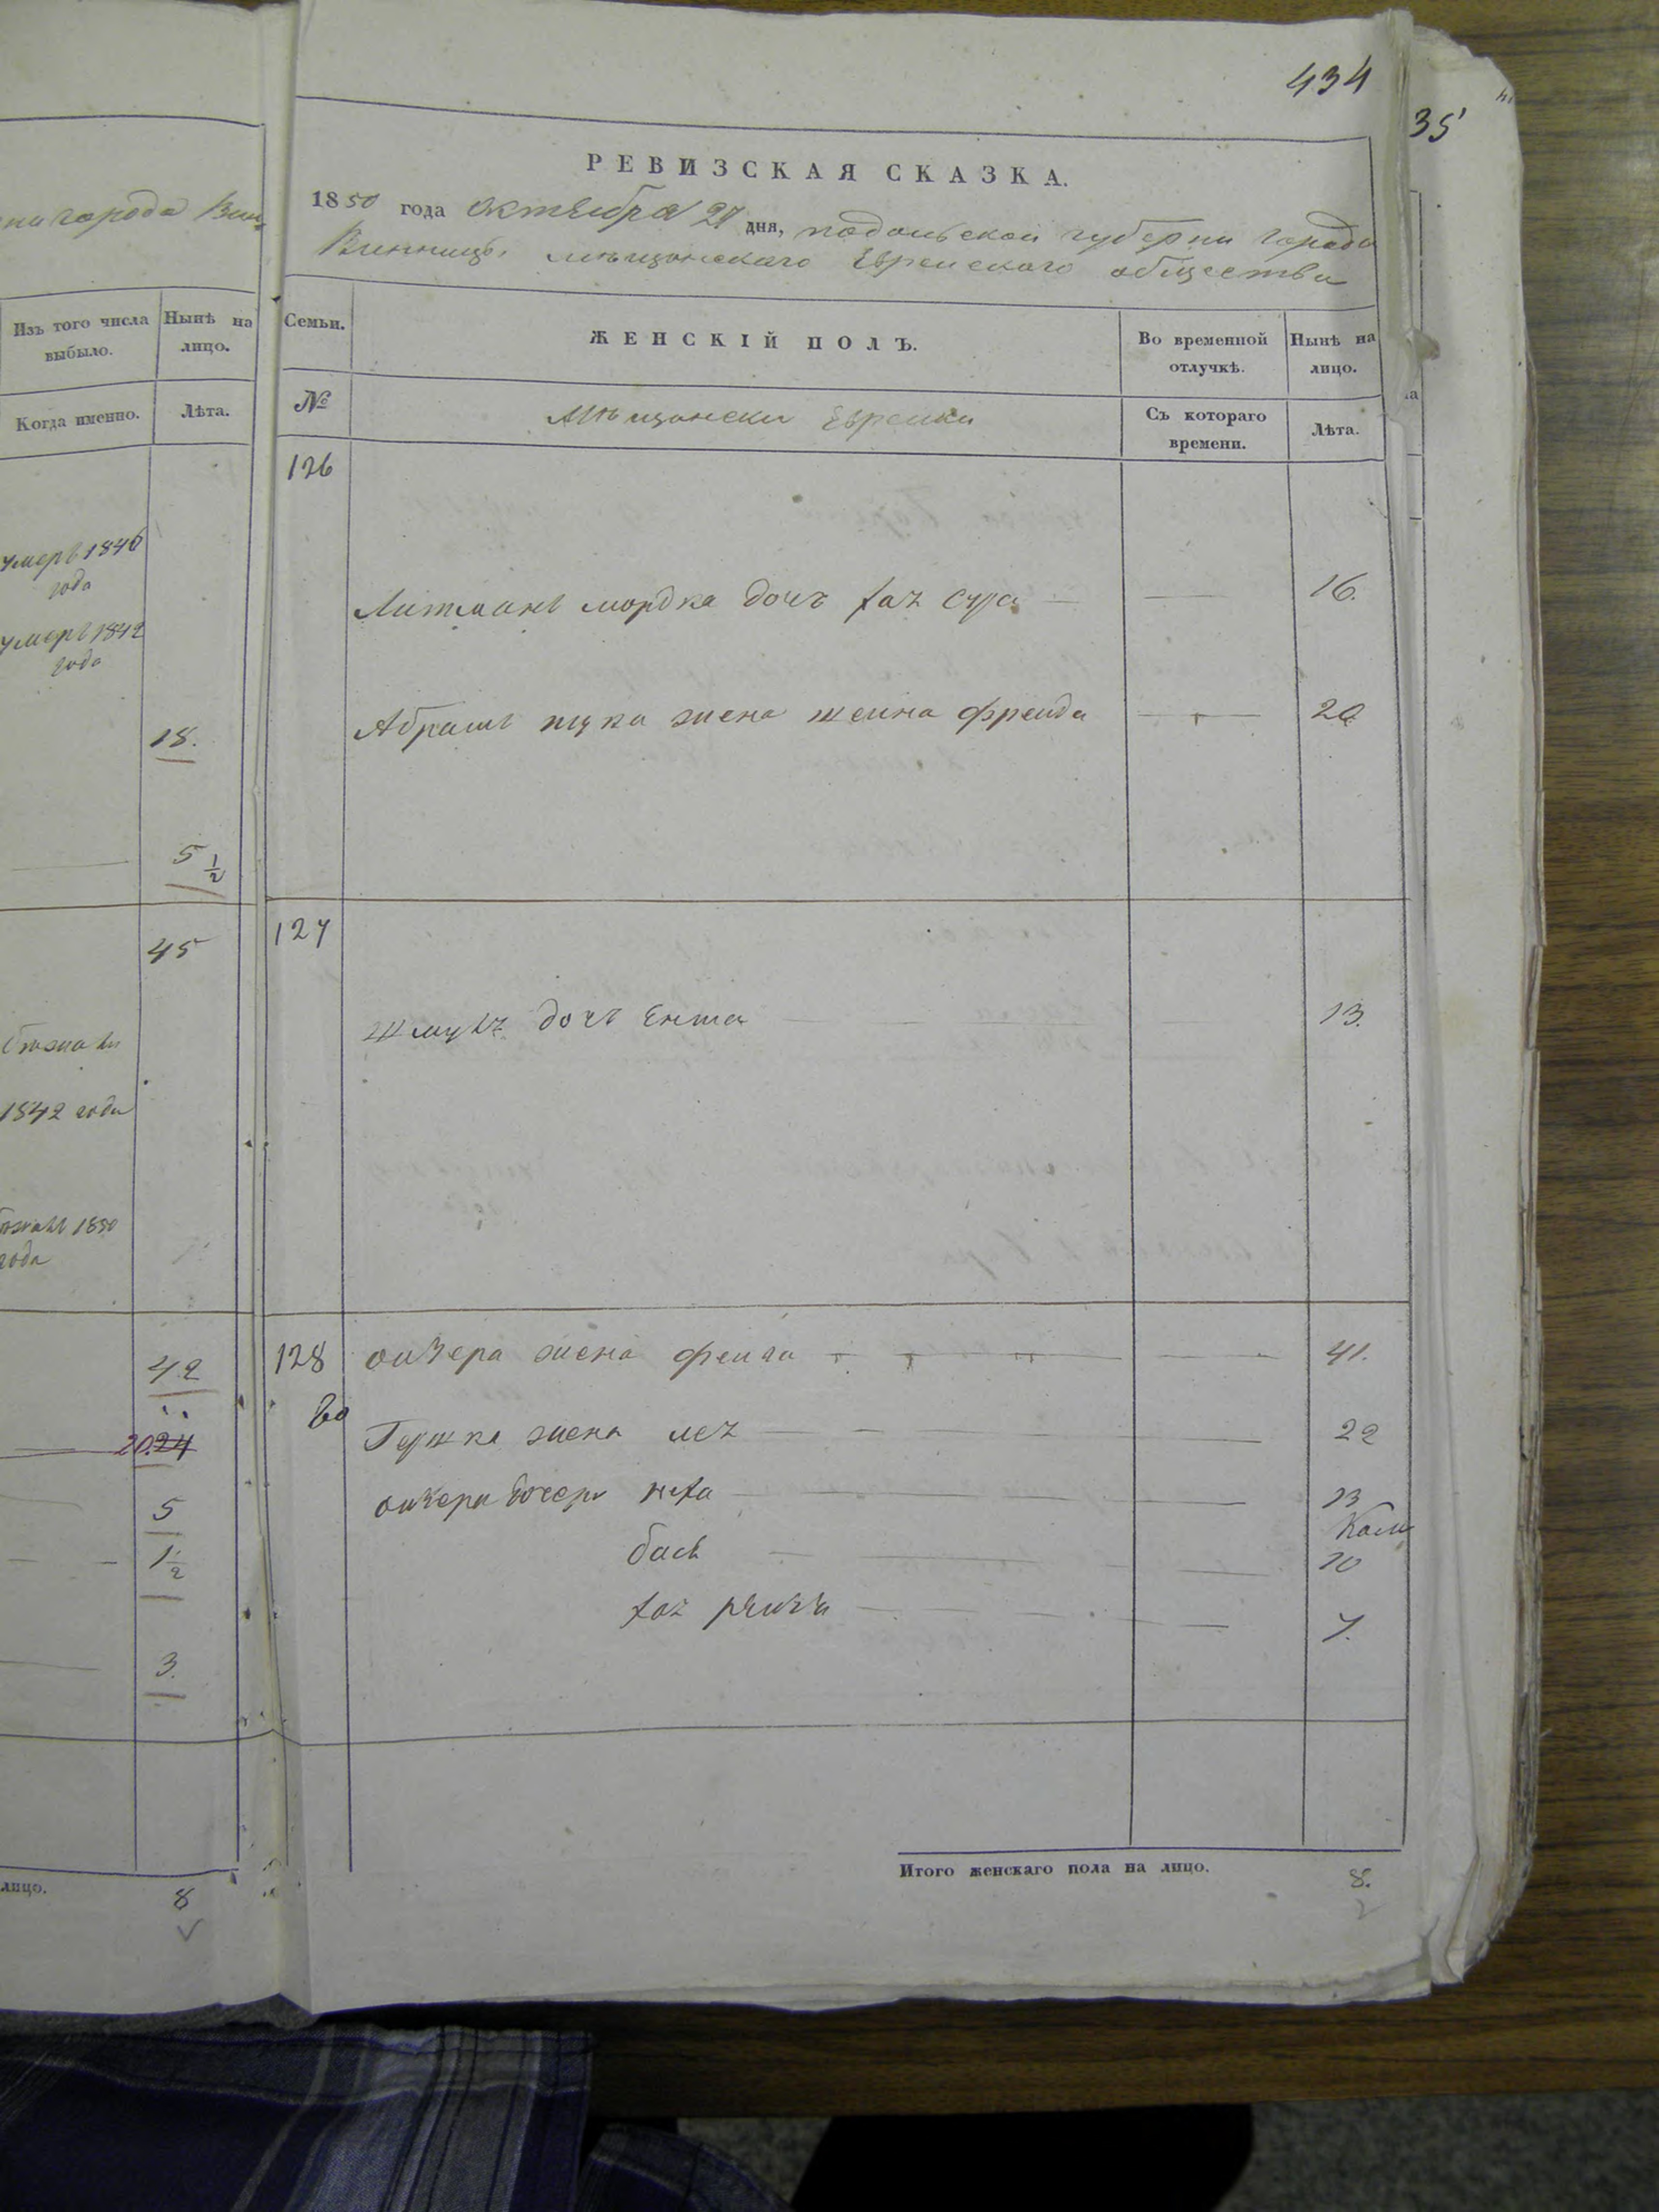 434
35
РЕВИЗСКАЯ СКАЗКА.
1850 года октября 27 дня, подольской губернии города
Винницы мещанскаго Еврейскаго общества
ни города Вин
Изъ того числа выбыло.
Нынѣ на лицо.
Когда именно.
Лѣта.
умеръ 1846
года
умеръ 1842
года
18.
5 1/2
45
1842 года
1850
года
42
20 24
5
1 1/2
3.
лицо.
8
Семьи.
ЖЕНСКІЙ ПОЛЪ.
Во временной отлучкѣ.
Нынѣ на лицо.
№
Мѣщански Еврейки
Съ котораго времени.
Лѣта.
126
Литмана мордка дочь хая сура 16.
Абрама жена шейна фрейда 20
127
дочь Ента 13.
128 жена фейга 41.
60
Гершка жена лея 22
дочери 13
бася 10
хая 7.
Итого женскаго пола на лицо.
8.